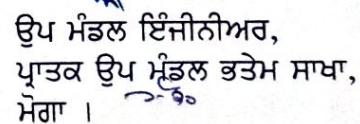 ਉਪ ਮੰਡਲ ਇੰਜੀਨੀਅਰ,
ਪ੍ਰਾਤਕ ਉਪ ਮੰਡਲ ਭਤੇਮ ਸਾਖਾ,
ਮੋਗਾ ।